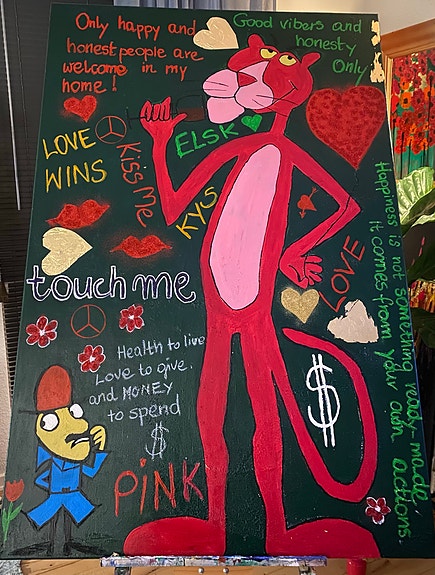 Only happy and
honest people are
welcome in my
home!
Good vibers and
honesty
Only
ELSK
LOVE
WINS
Kiss Me
KYS
touch me
LOVE
Happiness is not something ready-made.
It comes from your own actions.
Health to live
Love to give.
and MONEY
to spend
$
$
PINK